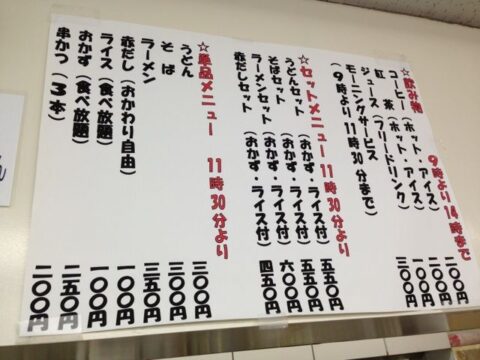 ☆飲み物 9時より14時まで
コーヒー(ホット・アイス) 二〇〇円
紅 茶(ホット・アイス) 二〇〇円
ジュース(フリードリンク) 三〇〇円
モーニングサービス
(9時より11時30分まで)
☆セットメニュー11時30分より
うどんセット (おかず・ライス付) 五五〇円
そばセット (おかず・ライス付) 五五〇円
ラーメンセット(おかず・ライス付) 六〇〇円
赤だしセット (おかず・ライス付) 四五〇円
☆単品メニュー 11時30分より
うどん 三〇〇円
そ ば 三〇〇円
ラーメン 三五〇円
赤だし(おかわり自由) 一〇〇円
ライス(食べ放題) 一〇〇円
おかず(食べ放題) 二五〇円
串かつ(3本) 二〇〇円